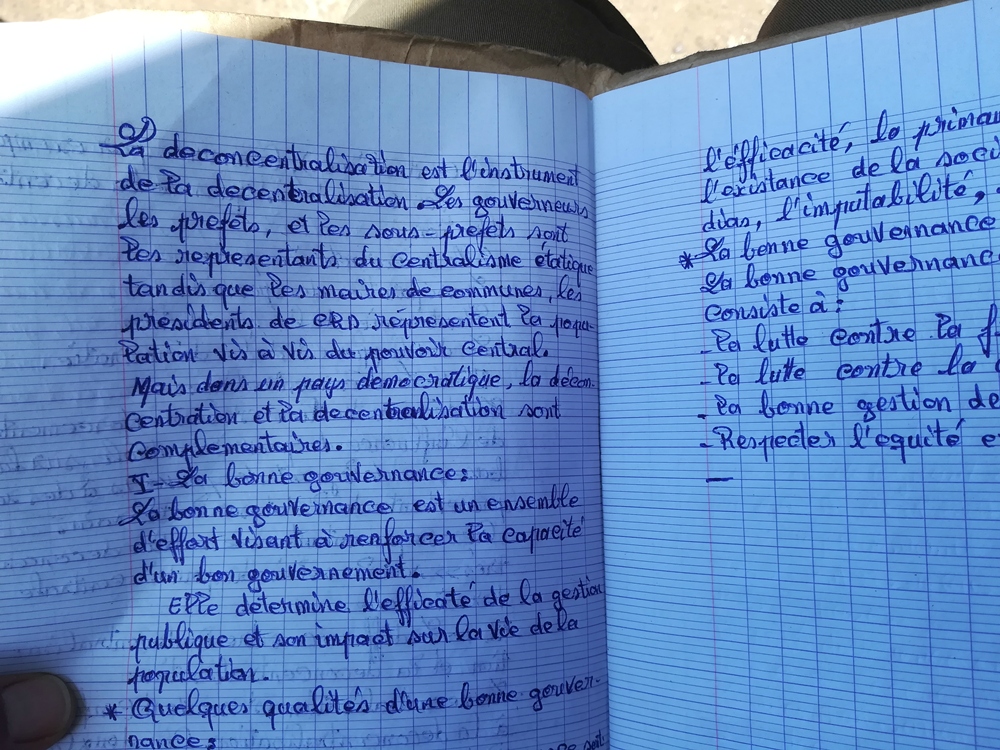 2)
La deconcentralisation est l'instrument
de la decentralisation. Les gouverneurs
les prefets, et les sous-prefets sont
les representants du centralisme étatique
tandis que les maires de communes, les
présidents de CRD répresentent la popu-
lation vis à vis du pouvoir central.
Mais dans un pays démocratique, la décon-
centration et la decentralisation sont
complementaires.
I- La bonne gouvernance:
La bonne gouvernance est un ensemble
d'effort visant à renforcer la capacité
d'un bon gouvernement.
Elle détermine l'efficaté de la gestion
publique et son impact sur la vie de la
population.
* Quelques qualités d'une bonne gouver-
nance:
l'éfficacité, la
l'existance de la
l'imputabilité,
* La bonne gouvernance
La bonne
consiste à:
- la lutte contre la
- la lutte contre la
- la bonne gestion de
- Respecter l'équité